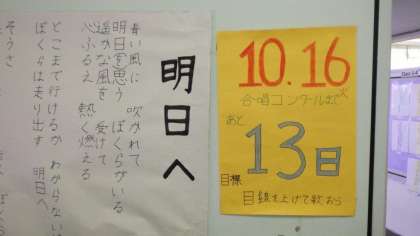 明日へ
青い風に 吹かれて
明日を思う ぼくらがいる
遥かな風を 受けて
心ふるえ 熱く燃える
どこまで行けるか わからない
ぼくらは走り出す 明日へ
そうさ
10.16
合唱コンクールまで
あと
13日
目標
目線を上げて歌おう